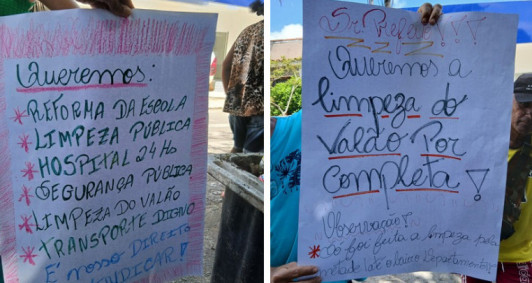 Queremos:
* REFORMA DA ESCOLA
* LIMPEZA PÚBLICA
* HOSPITAL 24 Hs
* SEGURANÇA PÚBLICA
* LIMPEZA DO VALÃO
* TRANSPORTE DIGNO
É NOSSO DIREITO
!
Sr. Prefeito!!!
Queremos a
limpeza do
Valão Por
completa!
Observação!
* só foi feita a limpeza pela
metade até o bairro